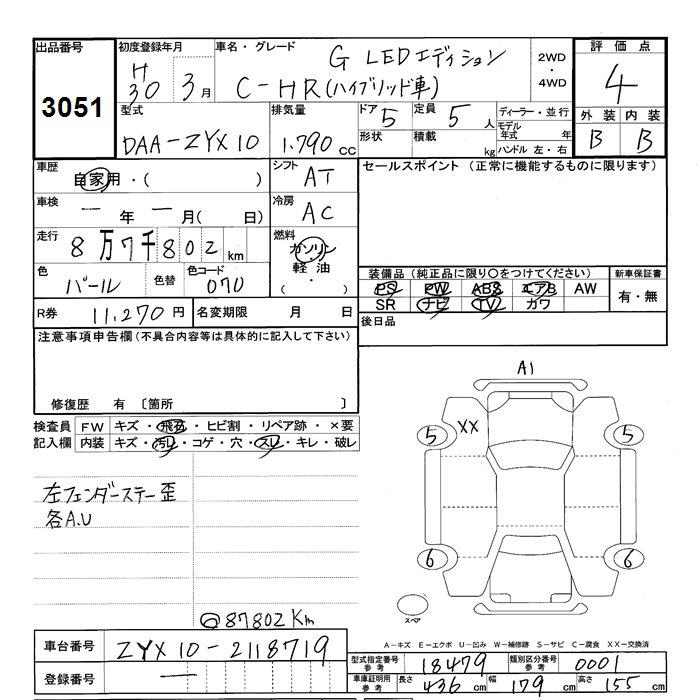 出品番号 初度登録年月 車名・グレード 2WD・4WD 評価点
3051 H30 3月 G LEDエディション
C-HR(ハイブリッド車) 4
型式 排気量 ドア 定員 ディーラー・並行 外装 内装
DAA-ZYX10 1.790 cc 5 5人 モデル年式 年 B B
形状 積載 kg ハンドル 左・右
車歴 シフト セールスポイント (正常に機能するものに限ります)
自家用・( ) AT
車検 冷房
一年一月( 日) AC
走行 燃料
8万7千802km ガソリン
軽油
( ・ )
色 色替 色コード 装備品(純正品に限り○をつけてください) 新車保証書
パール 070 PS PW ABS エアB AW 有・無
SR ナビ TV カワ
R券 11,270円 名変期限 月 日 後日品
注意事項申告欄(不具合内容等は具体的に記入して下さい)
修復歴 有 〔箇所 〕
検査員 FW キズ・飛石・ヒビ割・リペア跡・×要
記入欄 内装 キズ・汚レ・コゲ・穴・スレ・キレ・破レ
左フェンダーステー歪
各A.U
@87802Km
A1
XX
5 5
6 6
スペア
A-キズ E-エクボ U-凹み W-補修跡 S-サビ C-腐食 XX-交換済
車台番号 ZYX10-2118719
登録番号 一
型式指定番号 参考 18479 類別区分番号 参考 0001
車庫証明用 参考 長さ 436cm 幅 179cm 高さ 155cm